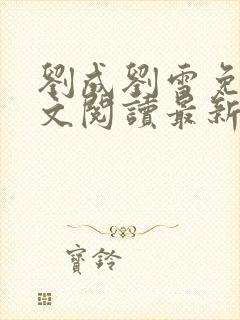 劉成劉雪免
文閱讀最新
寶鈴